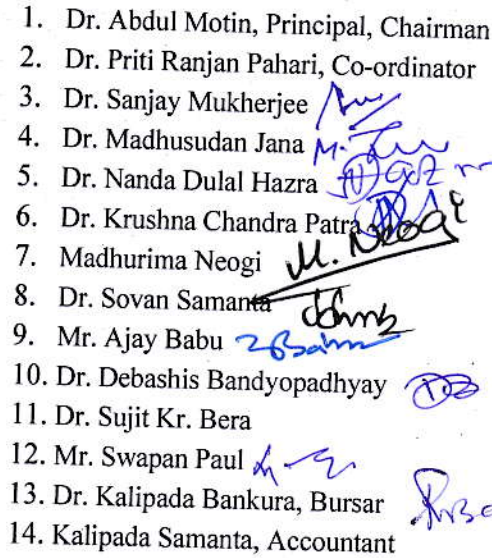 1. Dr. Abdul Motin, Principal, Chairman
2. Dr. Priti Ranjan Pahari, Co-ordinator
3. Dr. Sanjay Mukherjee
4. Dr. Madhusudan Jana
5. Dr. Nanda Dulal Hazra
6. Dr. Krushna Chandra Patra
7. Madhurima Neogi M. Neogi
8. Dr. Sovan Samanta
9. Mr. Ajay Babu
10. Dr. Debashis Bandyopadhyay
11. Dr. Sujit Kr. Bera
12. Mr. Swapan Paul
13. Dr. Kalipada Bankura, Bursar
14. Kalipada Samanta, Accountant